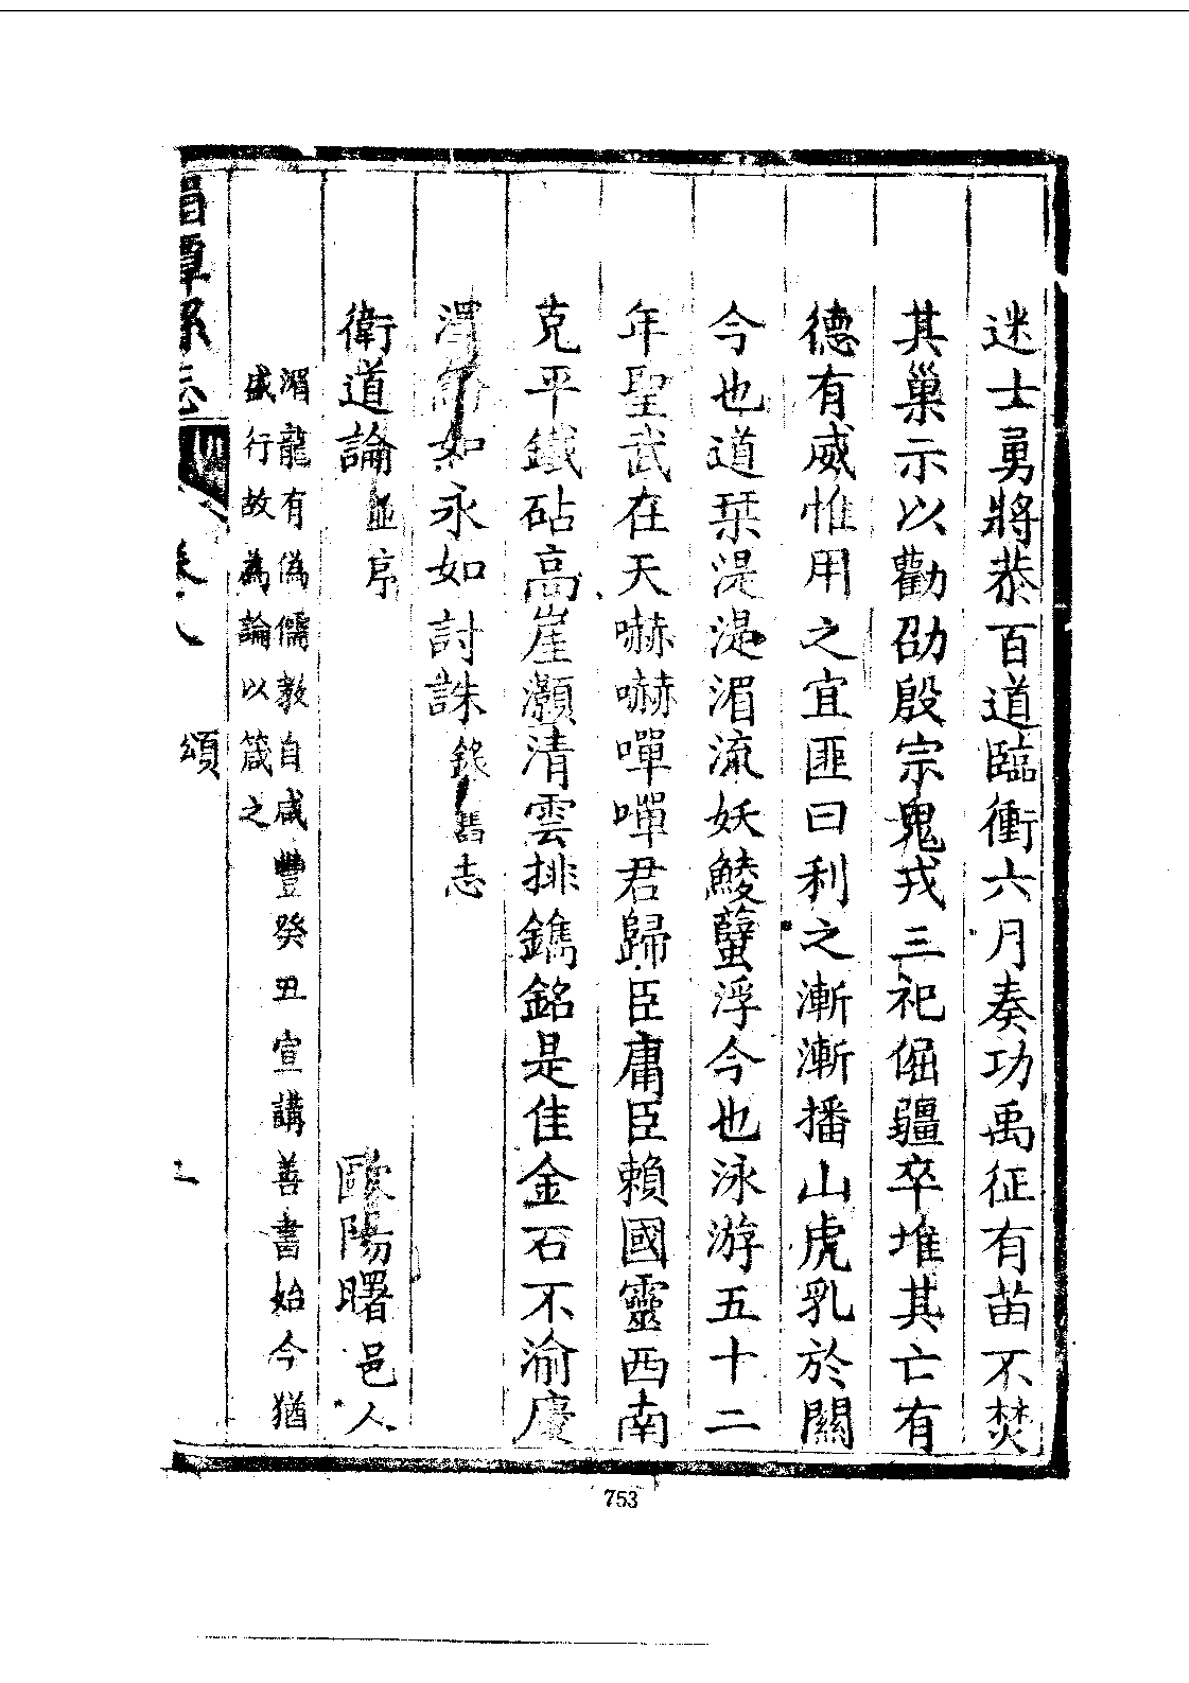 迷士勇將恭百道臨衝六月奏功禹征有苗不焚
其巢示以勸劭殷宗鬼戎三祀倔疆卒堆其亡有
德有威惟用之宜匪曰利之漸漸播山虎乳於關
今也道琹湜湜湄流妖鯪蠥浮今也泳游五十二
年聖武在天嚇嚇嘽嘽君歸臣庸臣賴國靈西南
克平鐵砧高崖灝清雲排鐫銘是佳金石不渝慶
如永如討誅錄舊志
衛道論並序 歐陽曙邑人
湄龍有偽儒教自咸豐癸丑宣講善書始今猶
盛行故為論以箴之
湄潭縣志 卷八 頌
753